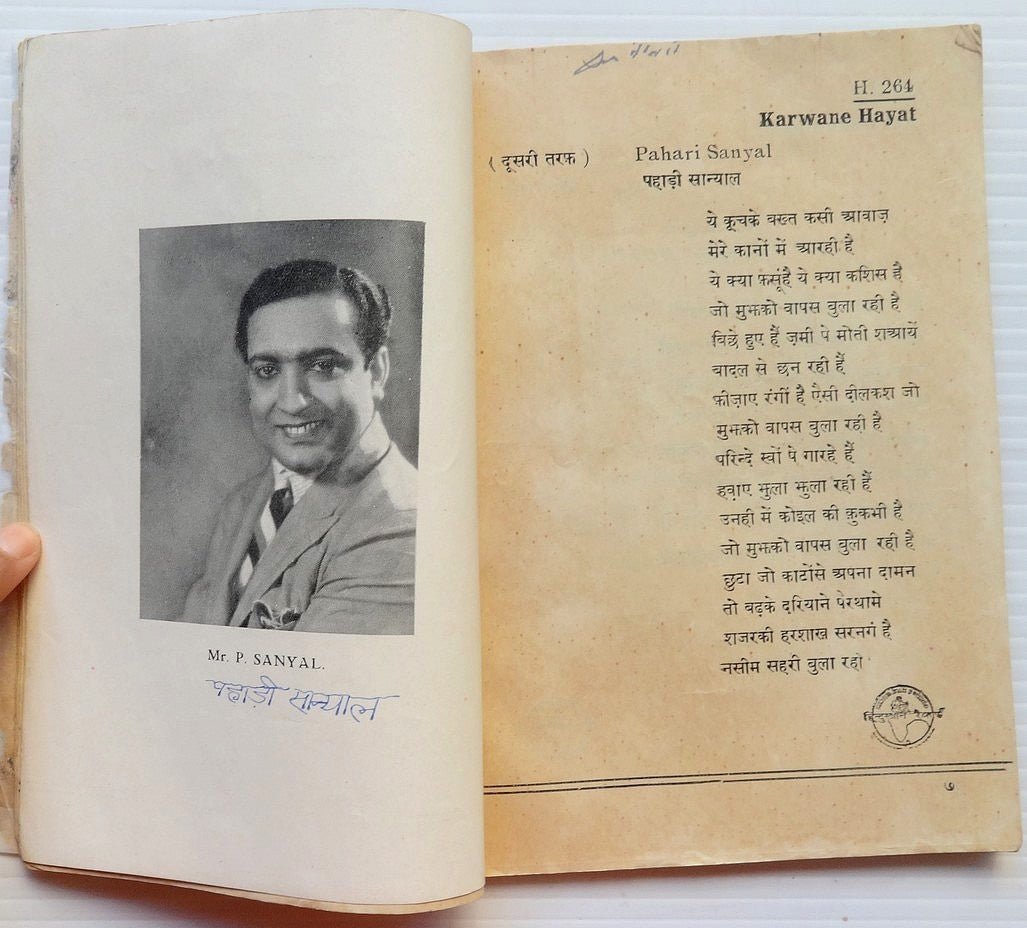 Mr. P. SANYAL.
पहाड़ी सान्याल
H. 264
Karwane Hayat
( दूसरी तरफ़ ) Pahari Sanyal
पहाड़ी सान्याल
ये कूचके वख्त कसी आवाज़
मेरे कानों में आरही है
ये क्या फ़सूंहै ये क्या कशिस है
जो मुझको वापस बुला रही है
बिछे हुए हैं ज़मी पे मोती शआयें
बादल से छन रही हैं
फ़ीज़ाए रंगीं है ऐसी दीलकश जो
मुझको वापस बुला रही है
परिन्दे स्वों पे गारहे हैं
हवाए झुला झुला रही हैं
उनही में कोइल की कुकभी है
जो मुझको वापस बुला रही है
छुटा जो काटोंसे अपना दामन
तो बढ़के दरियाने पेरथामे
शजरकी हरशाख़ सरनगं है
नसीम सहरी बुला रही
७